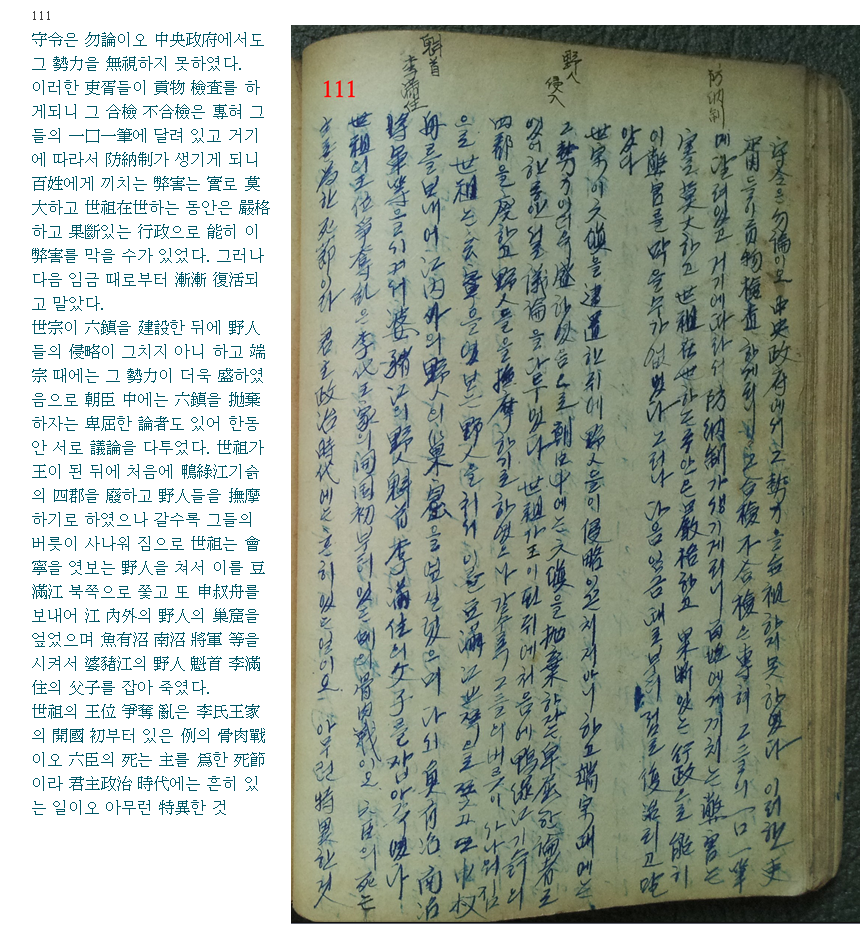 111
守令은 勿論이오 中央政府에서도
그 勢力을 無視하지 못하였다.
이러한 吏胥들이 貢物 檢査를 하
게되니 그 合檢 不合檢은 專혀 그
들의 一口一筆에 달려 있고 거기
에 따라서 防納制가 생기게 되니
百姓에게 끼치는 弊害는 實로 莫
大하고 世祖在世하는 동안은 嚴格
하고 果斷있는 行政으로 能히 이
弊害를 막을 수가 있었다. 그러나
다음 임금 때로부터 漸漸 復活되
고 말았다.
世宗이 六鎭을 建設한 뒤에 野人
들의 侵略이 그치지 아니 하고 端
宗 때에는 그 勢力이 더욱 盛하였
음으로 朝臣 中에는 六鎭을 抛棄
하자는 卑屈한 論者도 있어 한동
안 서로 議論을 다투었다. 世祖가
王이 된 뒤에 처음에 鴨綠江기슭
의 四郡을 廢하고 野人들을 撫摩
하기로 하였으나 갈수록 그들의
버릇이 사나워 짐으로 世祖는 會
寧을 엿보는 野人을 쳐서 이를 豆
滿江 북쪽으로 쫓고 또 申叔舟를
보내어 江 內外의 野人의 巢窟을
엎었으며 魚有沼 南沼 將軍 等을
시켜서 婆豬江의 野人 魁首 李滿
住의 父子를 잡아 죽였다.
世祖의 王位 爭奪 亂은 李氏王家
의 開國 初부터 있은 例의 骨肉戰
이오 六臣의 死는 主를 爲한 死節
이라 君主政治 時代에는 흔히 있
는 일이오 아무런 特異한 것
111
防納制
野人
侵入
魁首
李滿住
守令은 勿論이오 中央政府에서 그 勢力을 無視하지 못하였다 이러한 吏
胥들이 貢物檢査 하게되니 그 合檢 不合檢은 專혀 그들의 一口一筆
에 달려있고 거기에 따라서 防納制가 생기게되니 百姓에게 끼치는 弊害는
實로 莫大하고 世祖在世하는 동안은 嚴格하고 果斷있는 行政으로 能히
이 弊害를 막을수가 있었다 그러나 다음 임금때로부터 점점 復活되고 말
았다
世宗이 六鎭을 建置한 뒤에 野人들이 侵略이 끈치지 아니하고 端宗때에는
그 勢力이 더욱 盛하였슴으로 朝臣中에는 六鎭을 抛棄하자는 卑屈한 論者도
있어 한동안 서로 議論을 다투었다 世祖가 王이 된 뒤에 처음에 鴨綠江기슭의
四郡을 廢하고 野人들을 撫摩하기로 하였으나 갈수록 그들의 버릇이 사나워짐
으로 世祖는 會寧을 엿보는 野人을 쳐서 이를 豆滿江 북쪽으로 쫓고 또 申叔
舟를 보내어 江內外의 野人의 巢窟을 魚有沼 南沼
將軍等을 시켜서 婆豬江의 野人 魁首 李滿住의 父子를 잡아 죽였다
世祖의 王位爭奪亂은 李氏王家의 開國初부터 있은 例의 骨肉戰이오 六臣의 死는
主를 爲한 死節이라 君主政治時代에는 흔히 있는 일이오 아무런 特異한 것